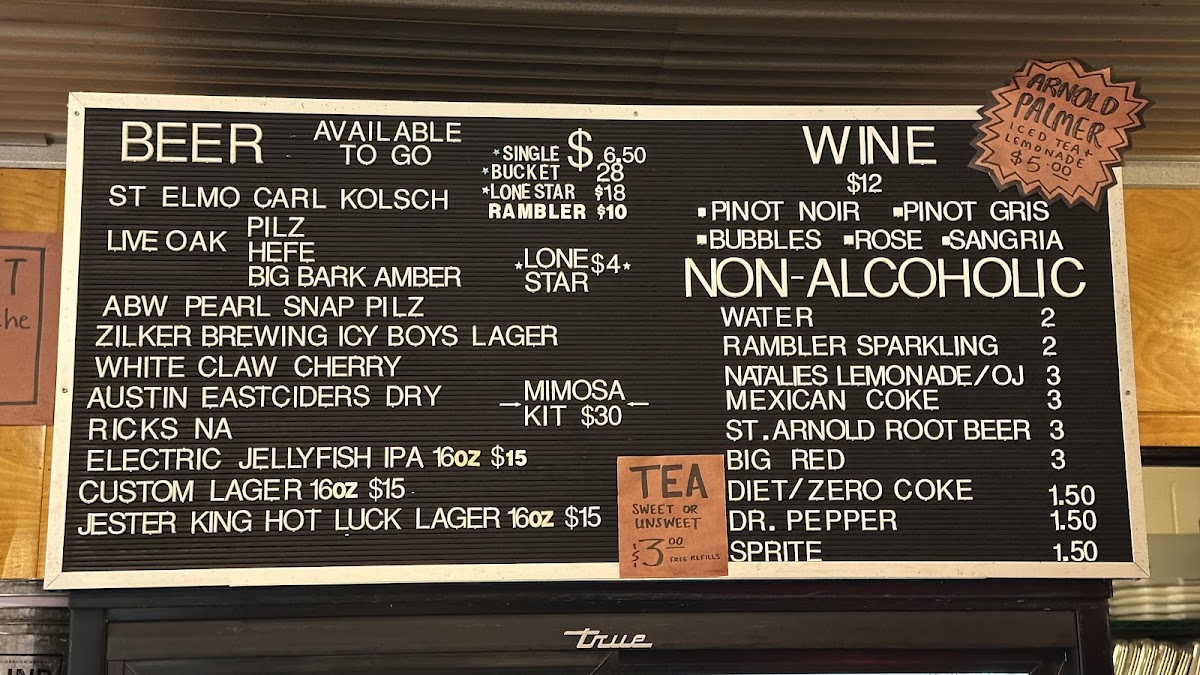 BEER
AVAILABLE
TO GO
*SINGLE $ 6.50
*BUCKET 28
*LONE STAR $18
RAMBLER $10
ST ELMO CARL KOLSCH
LIVE OAK
PILZ
HEFE
BIG BARK AMBER
*LONE STAR $4*
ABW PEARL SNAP PILZ
ZILKER BREWING ICY BOYS LAGER
WHITE CLAW CHERRY
AUSTIN EASTCIDERS DRY
MIMOSA
KIT $30
RICKS NA
ELECTRIC JELLYFISH IPA 16OZ $15
CUSTOM LAGER 16OZ $15
JESTER KING HOT LUCK LAGER 16OZ $15
WINE
$12
▪PINOT NOIR ▪PINOT GRIS
▪BUBBLES ▪ROSE ▪SANGRIA
NON-ALCOHOLIC
WATER 2
RAMBLER SPARKLING 2
NATALIES LEMONADE/OJ 3
MEXICAN COKE 3
ST. ARNOLD ROOT BEER 3
BIG RED 3
DIET/ZERO COKE 1.50
DR. PEPPER 1.50
SPRITE 1.50
ARNOLD
PALMER
ICED TEA +
LEMONADE
$5.00
TEA
SWEET OR
UNSWEET
$3.00 FREE REFILLS
true